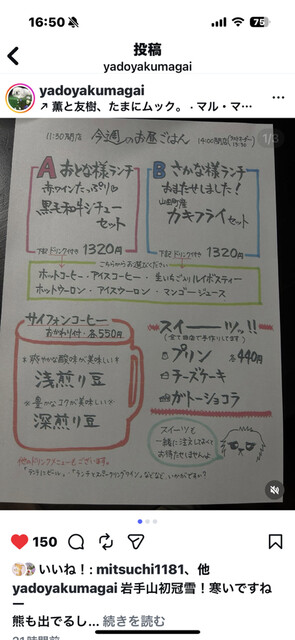 16:50
50
投稿
yadoyakumagai
yadoyakumagai
↗ 薫と友樹、たまにムック。 · マル・マ…
1/3
11:30開店
今週のお昼ごはん
14:00閉店
A おとな様ランチ
赤ワインたっぷり♡
黒毛和牛シチュー
セット
ドリンク付き 1320円
B さかな様ランチ
おまたせしました!
山田町産
カキフライセット
ドリンク付き 1320円
こちらからお選びください
ホットコーヒー・アイスコーヒー・生いちご入りルイボスティー
ホットウーロン・アイスウーロン・マンゴージュース
サイフォンコーヒー
おかわり付・各550円
爽やかな酸味が美味しい
浅煎り豆
豊かなコクが美味しい
深煎り豆
他のドリンクメニューもございます。
「ランチビール」、「ランチスパークリングワイン」などなど いかがですか?
スイーーツッ!!
(全て自店で手作りしてます)
プリン 各440円
チーズケーキ
ガトーショコラ
スイーツと
一緒に注文しても
お待たせしませんよ
150
いいね!: mitsuchi1181、他
yadoyakumagai 岩手山初冠雪!寒いですね
ー
熊も出でるし... 続きを読む
21時間前